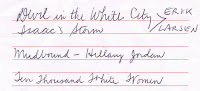 Devil in the White City > ERIK
Isaac's Storm LARSEN
Mudbound - Hillary Jordan
Ten Thousand White Women